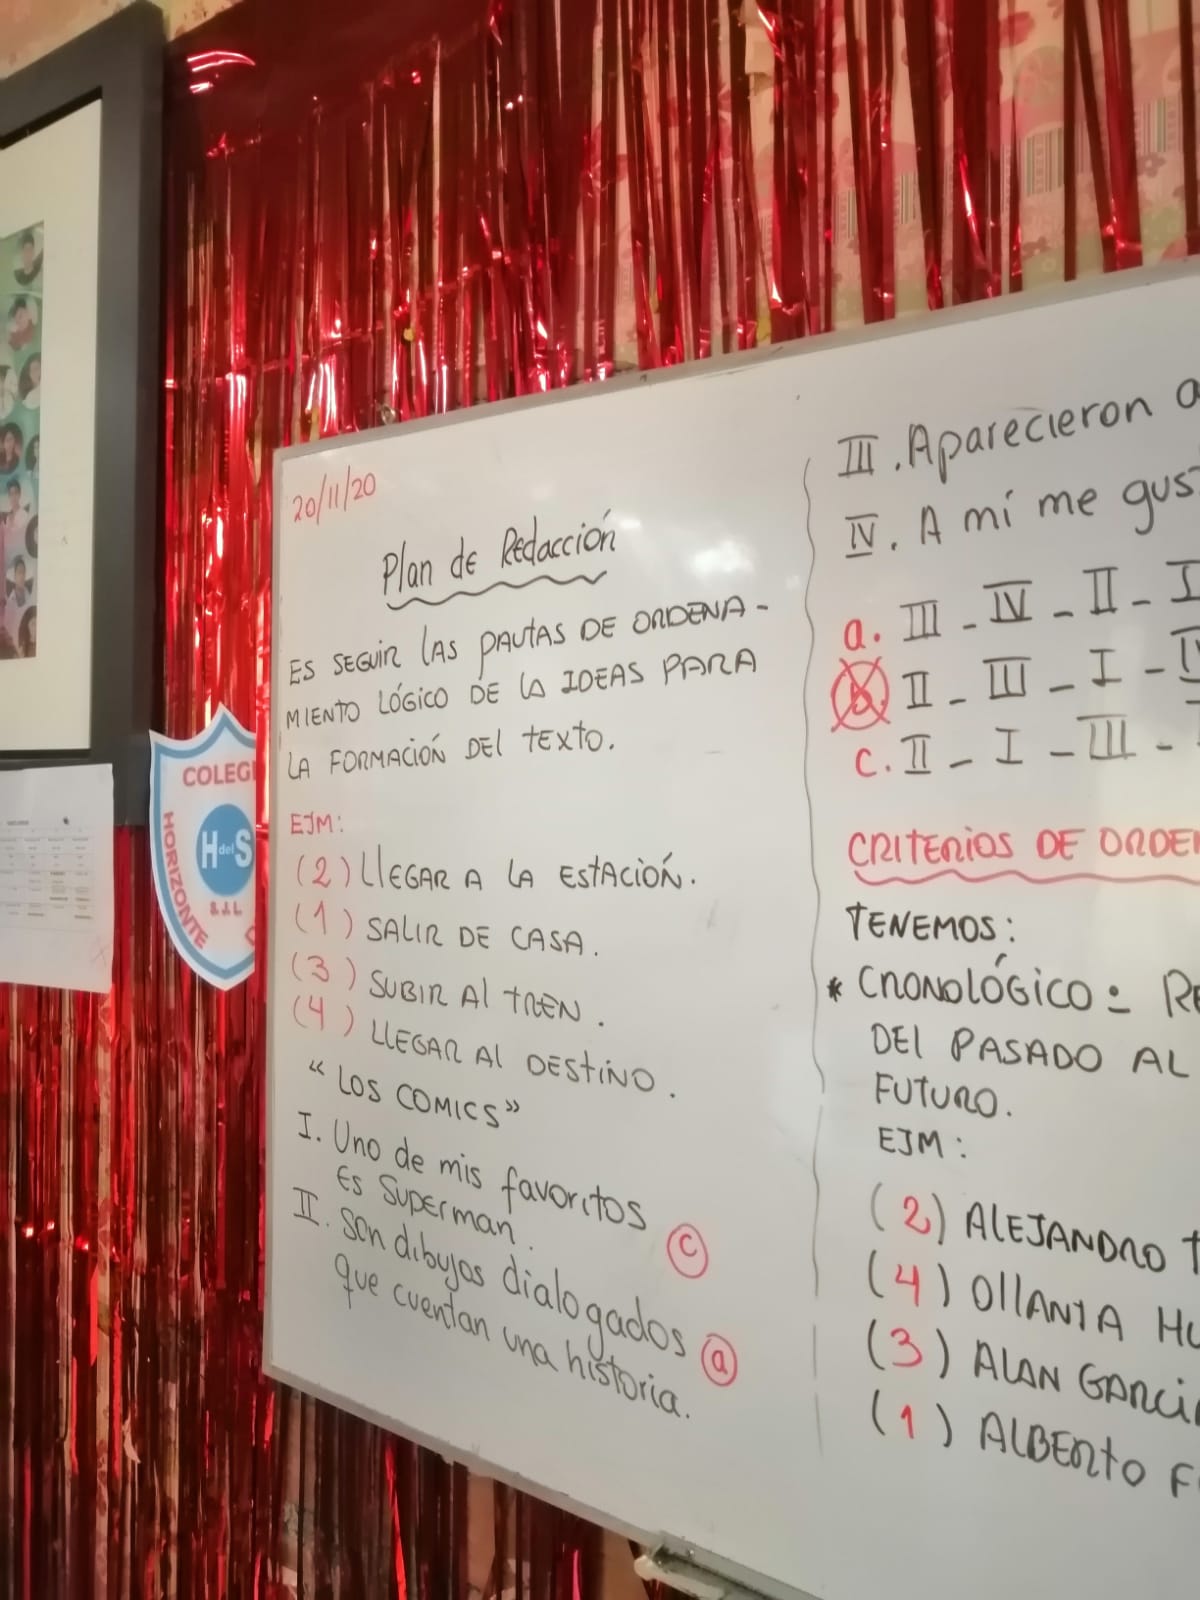 20/11/20
Plan de Redacción
ES SEGUIR LAS PAUTAS DE ORDENA-
MIENTO LÓGICO DE LA IDEAS PARA
LA FORMACIÓN DEL TEXTO.
EJM:
(2) LLEGAR A LA ESTACIÓN.
(1) SALIR DE CASA.
(3) SUBIR AL TREN.
(4) LLEGAR AL DESTINO.
“LOS COMICS”
I. Uno de mis favoritos
ES SUPERMAN. C
II. Son dibujos dialogados
que cuentan una historia. a
III. Aparecieron
IV. A mí me
a. III - IV - II - I
b. II - III - I - IV
c. II - I - III -
CRITERIOS DE
TENEMOS:
* CRONOLÓGICO:
DEL PASADO AL
FUTURO.
EJM:
(2) ALEJANDRO
(4) OLLANTA
(3) ALAN GARCÍA
(1) ALBERTO
HORIZONTE
H del S
S.J.L